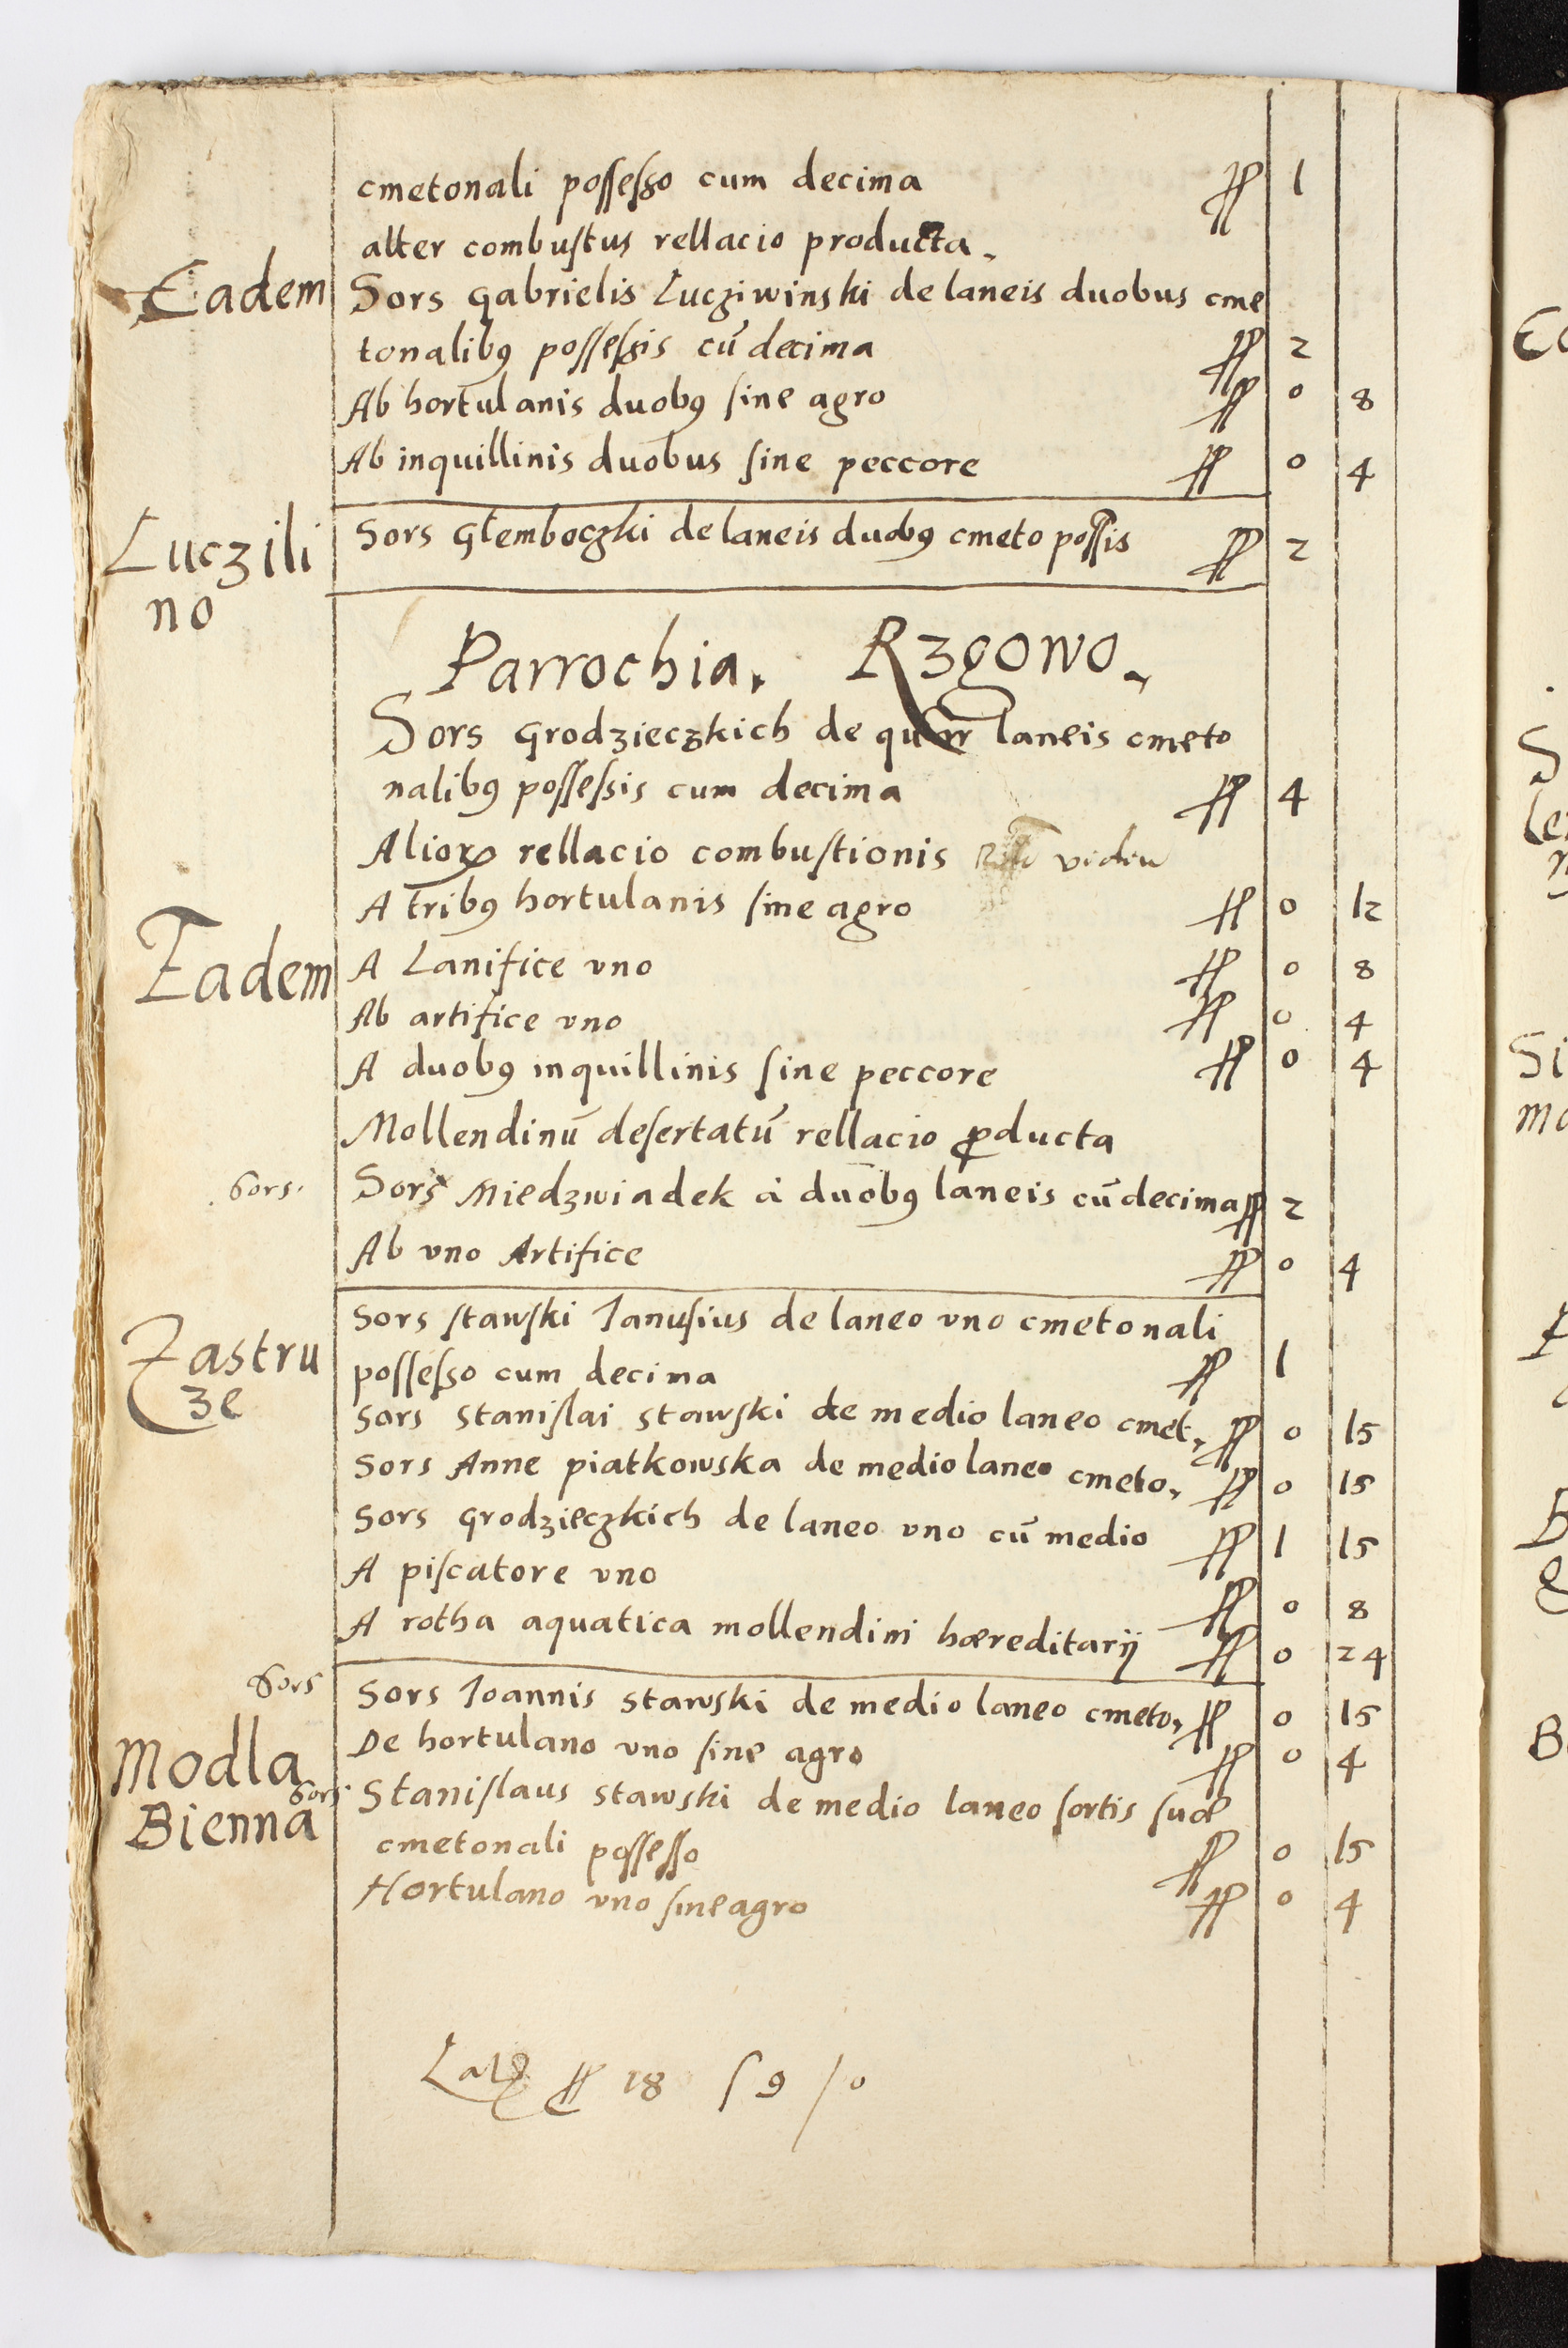 cmetonali possesso cum decima ff 1
alter combustus rellacio producta.
Eadem Sors Gabrielis Lucziwinski de laneis duobus cme
tonalibꝰ possessis cū decima ff 2
Ab hortulanis duobꝰ sine agro ff 0 8
Ab inquillinis duobus sine peccore ff 0 4
Luczili
no
Sors Glemboczki de laneis duobꝰ cmeto possis ff 2
Parrochia. Rzgowo.
Sors Grodzieczkich de laneis cmeto
nalibꝰ possessis cum decima ff 4
Aliorꝝ rellacio combustionis
A tribꝰ hortulanis sine agro ff 0 12
Eadem A Lanifice vno ff 0 8
Ab artifice vno ff 0 4
A duobꝰ inquillinis sine peccore ff 0 4
Mollendinū desertatū rellacio ꝓducta
Sors. Sors Miedzwiadek à duobꝰ laneis cū decima ff 2
Ab vno Artifice ff 0 4
Zastru
ze
Sors stawski Janusius de laneo vno cmetonali
possesso cum decima ff 1
Sors stanislai stawski de medio laneo cmet. ff 0 15
Sors Anne piatkowska de medio laneo cmeto. ff 0 15
Sors Grodzieczkich de laneo vno cū medio ff 1 15
A piscatore vno ff 0 8
A rotha aquatica mollendini hæreditarij ff 0 24
Sors Sors Joannis stawski de medio laneo cmeto. ff 0 15
De hortulano vno sine agro ff 0 4
Modla
Bienna
Sors Stanislaus stawski de medio laneo sortis suæ
cmetonali possesso ff 0 15
Hortulano vno sine agro ff 0 4
ff 18 / 9 / 0